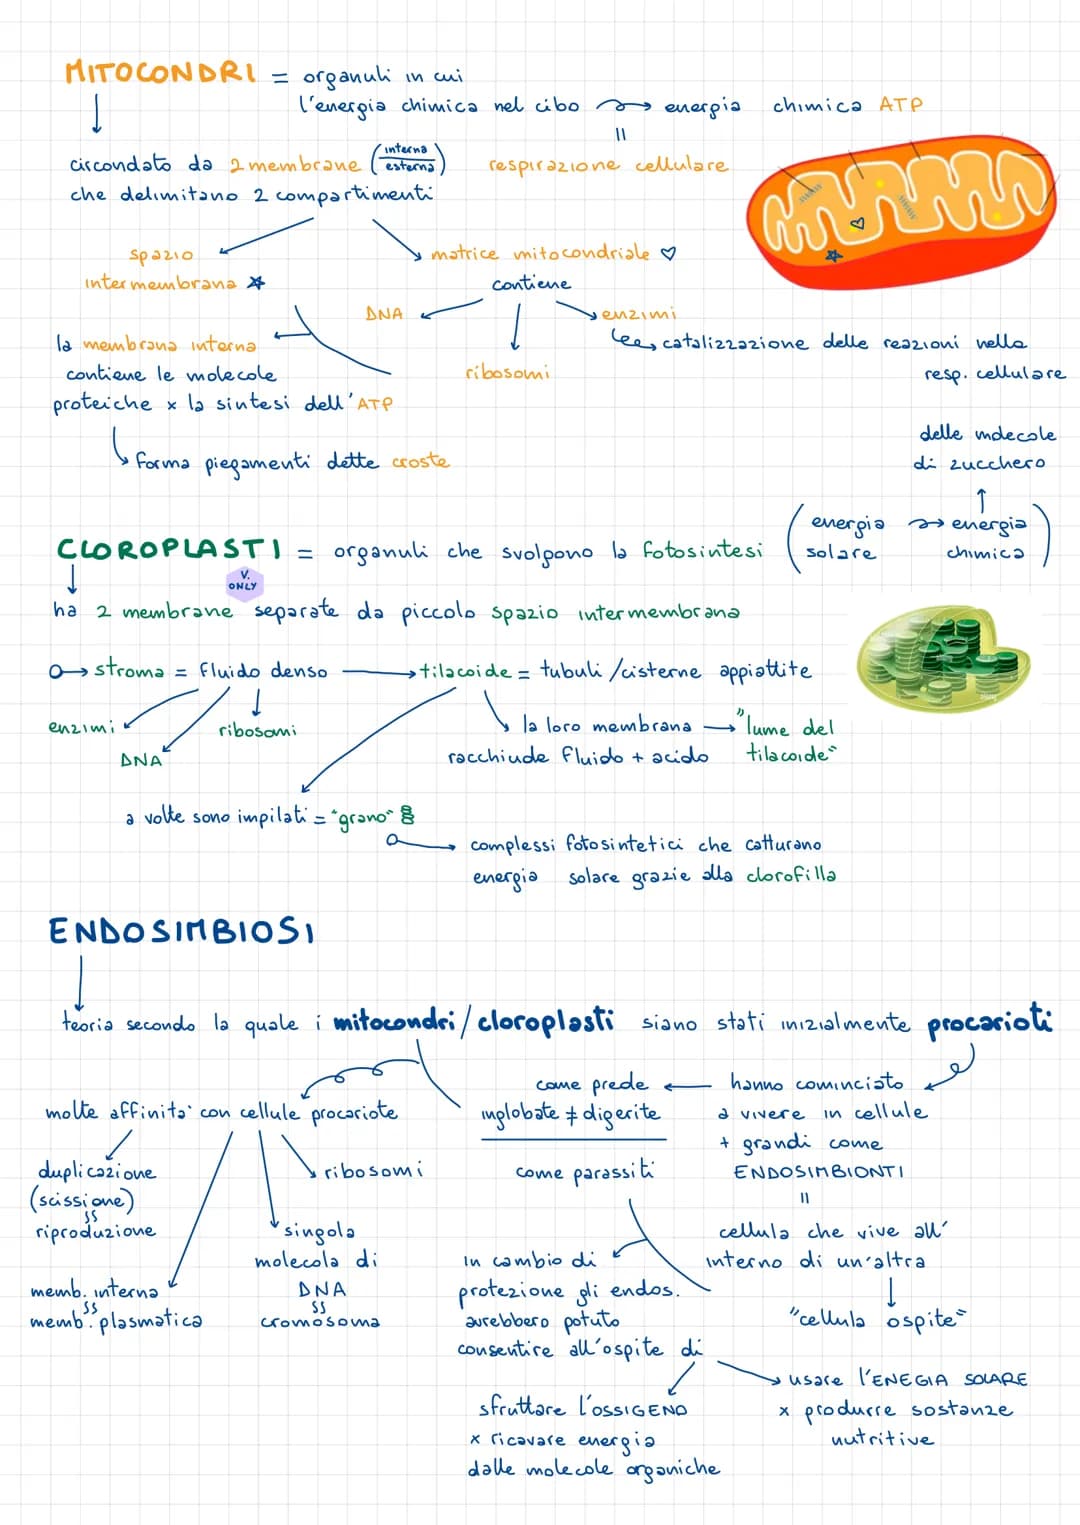 MITOCONDRI = organuli in cui
l'energia chimica nel cibo → energia chimica ATP
=
respirazione cellulare
circondato da 2 membrane (interna
esterna)
che delimitano 2 compartimenti
spazio
intermembrana ☆
matrice mitocondriale ♡
contiene
DNA
ribosomi
enzimi
catalizzazione delle reazioni nella
resp. cellulare
la membrana interna
contiene le molecole
proteiche x la sintesi dell'ATP
forma piegamenti dette croste
delle molecole
di zucchero
↑
CLOROPLASTI = organuli che svolpono la fotosintesi (energia solare → energia chimica)
V.
ONLY
ha 2 membrane separate da piccolo spazio intermembrana
stroma = fluido denso → tilacoide = tubuli/cisterne appiattite
enzimi
DNA
ribosomi
la loro membrana → "lume del
racchiude fluido + acido tilacoide"
a volte sono impilati = "grano"
complessi fotosintetici che catturano
energia solare grazie alla clorofilla
ENDOSIMBIOSI
teoria secondo la quale i mitocondri/cloroplasti siano stati inizialmente procarioti
hanno cominciato
a vivere in cellule
+ grandi come
ENDOSIMBIONTI
=
cellula che vive all'
interno di un'altra
"cellula ospite"
come prede
inglobate ≠ digerite
come parassiti
in cambio di
protezione gli endos.
avrebbero potuto
consentire all'ospite di
sfruttare l'OSSIGENO
x ricavare energia
dalle molecole organiche
usare l'ENEGIA SOLARE
x produrre sostanze
nutritive
molte affinita' con cellule procariote
duplicazione
(scissione)
SS
riproduzione
memb. interna
SS
memb. plasmatica
singola
molecola di
DNA
SS
cromosoma
ribosomi